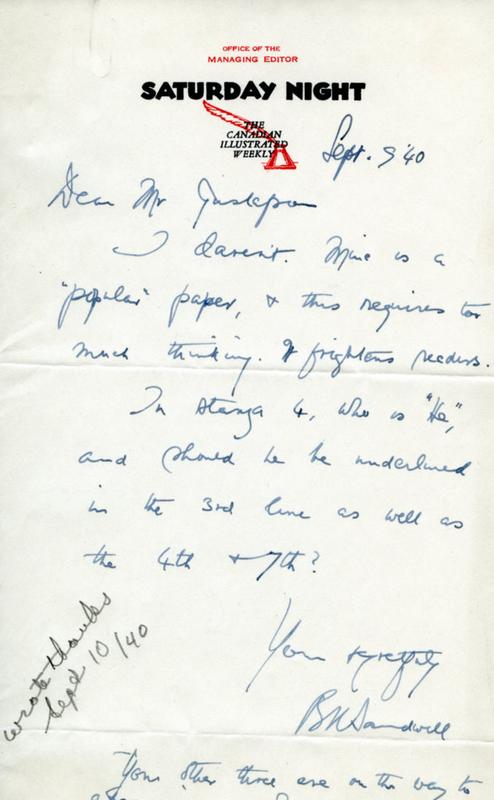 OFFICE OF THE
MANAGING EDITOR
SATURDAY NIGHT
THE
CANADIAN
ILLUSTRATED
WEEKLY
Sept. 9 '40
Dear Mr Gustafson
I daren't. Mine is a
"popular" paper, & this requires too
much thinking. It frightens readers.
In stanza 4, who is "He",
and should he be underlined
in the 3rd line as well as
the 4th & 7th?
Yours regretfully
BK Sandwell
wrote thanks
Sept 10/40
Your other three are on the way to